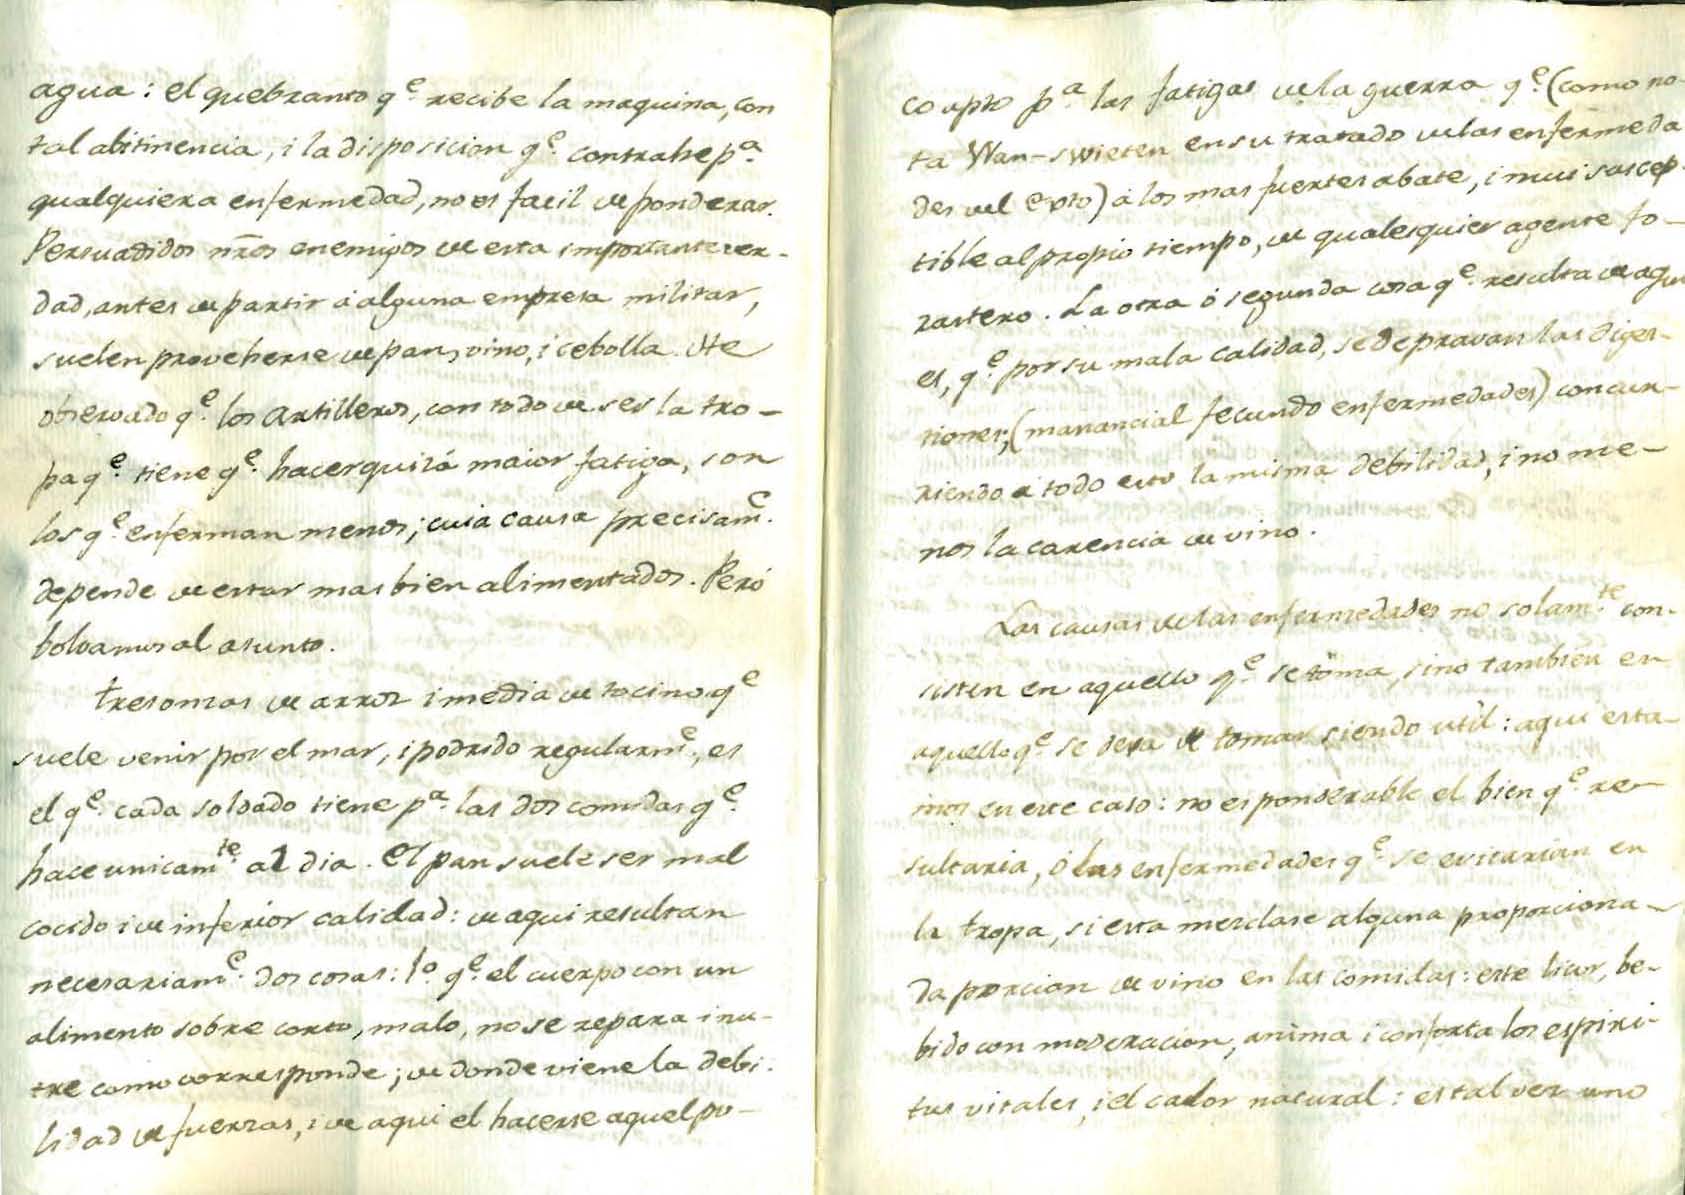 agua: el quebranto q.e recibe la maquina, con
tal abstinencia, i la disposicion q.e contrahe p.a
qualquiera enfermedad, no es facil de ponderar.
Persuadidos nros enemigos de esta importante ver-
dad, antes de partir á alguna empresa militar,
suelen proveherse de pan, vino, i cebolla. He
observado q.e los Artilleros, con todo de ser la tro-
pa q.e tiene q.e hacer quizá maior fatiga, son
los q.e enferman menos; cuia causa precisam.e
depende de estar mas bien alimentados. Peró
bolvamos al asunto.
tres onzas de arroz i media de tocino q.e
suele venir por el mar, i podrido regularm.e, es
el q.e cada soldado tiene p.a las dos comidas q.e
hace unicam.te al dia. El pan suele ser mal
cocido i de inferior calidad: de aqui resultan
necesariam.e dos cosas: 1.o q.e el cuerpo con un
alimento sobre corto, malo, no se repara i nu-
tre como corresponde; de donde viene la debi-
lidad de fuerzas, i de aqui el hacerse aquel po-
co apto p.a las fatigas de la guerra q.e (como no-
ta Wan-swieten en su tratado de las enfermeda
des del exto) á los mas fuertes abate, i mui suscep-
tible al propio tiempo, de qualesquier agente fo-
rastero. La otra ó segunda cosa q.e resulta de aqui
es, q.e por su mala calidad, se depravan las diges-
tiones; (manancial fecundo enfermedades) concur-
riendo á todo esto la misma debilidad, i no me-
nos la carencia de vino.
Las causas de las enfermedades no solam.te con-
sisten en aquello q.e se toma, sino tambien en
aquello q.e se dexa de tomar siendo util: aqui esta-
mos en este caso: no es ponderable el bien q.e re-
sultaria, ó las enfermedades q.e se evitarian en
la tropa, si esta mesclase alguna proporciona-
da porcion de vino en las comidas: este licor, be-
bido con moderacion, anima i conforta los espiri-
tus vitales, i el calor natural: es tal vez uno